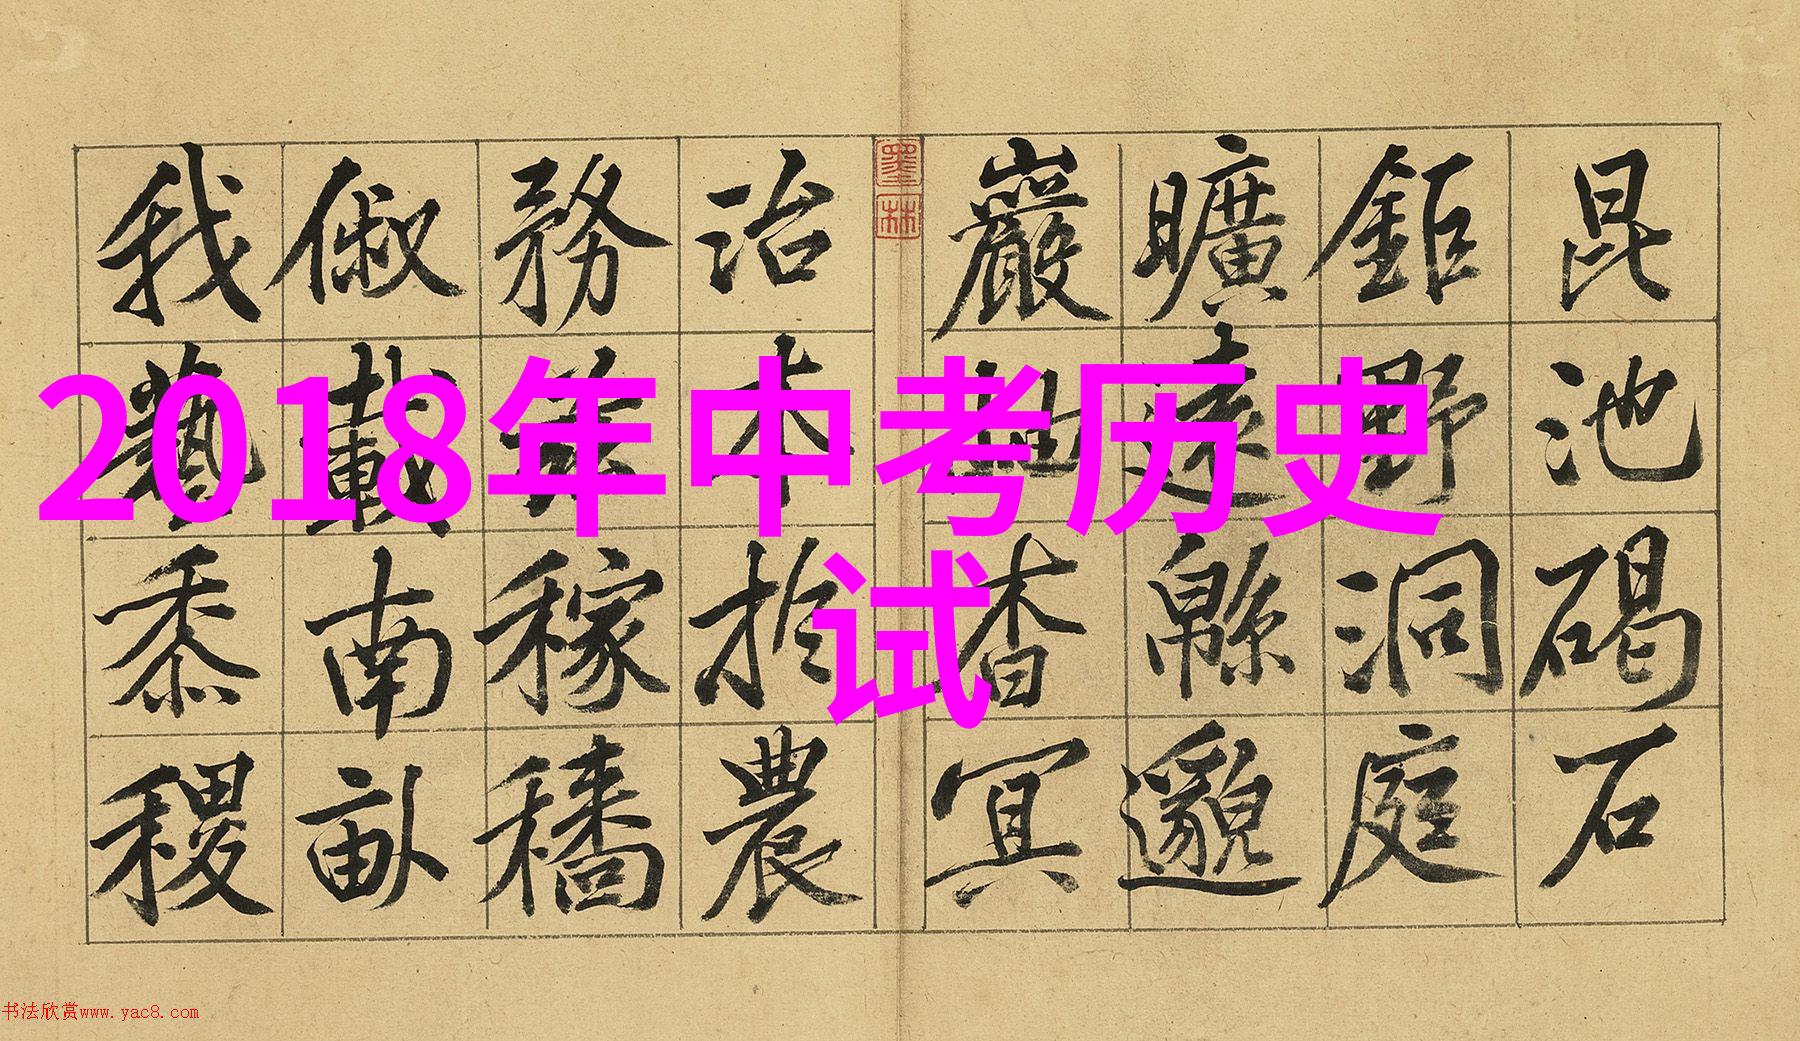 2018年中考历史
试
昆池碣石
鉅野洞庭
曠遠緜邈
巖岫杳冥
治本於農
務茲稼穡
俶載南畝
我藝黍稷
墨林
书法欣赏www.yac8.com